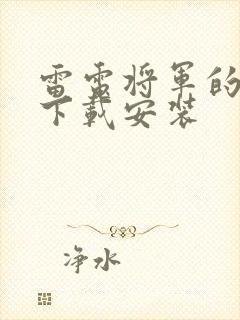 雷雷将军的
下载安装
净水